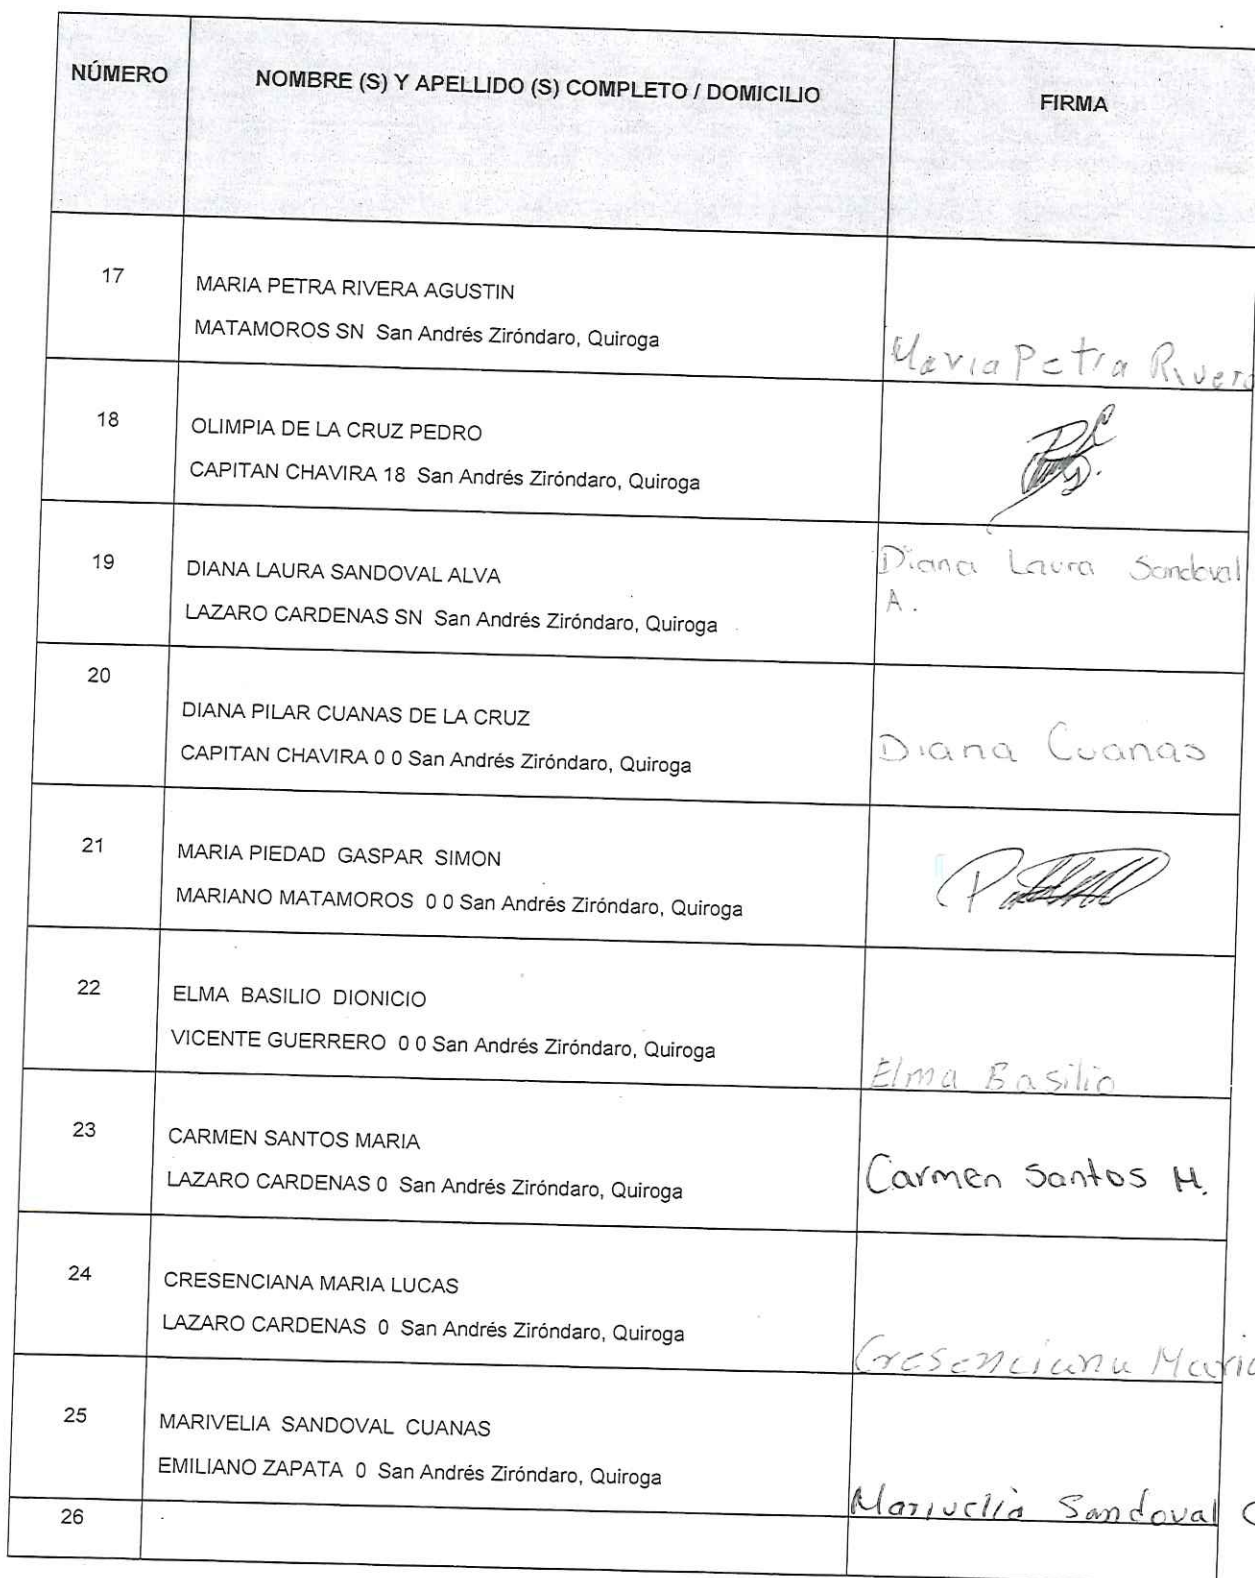 NÚMERO
NOMBRE (S) Y APELLIDO (S) COMPLETO / DOMICILIO
FIRMA
17
MARIA PETRA RIVERA AGUSTIN
MATAMOROS SN San Andrés Ziróndaro, Quiroga
Maria Petra Rivera
18
OLIMPIA DE LA CRUZ PEDRO
CAPITAN CHAVIRA 18 San Andrés Ziróndaro, Quiroga
19
DIANA LAURA SANDOVAL ALVA
LAZARO CARDENAS SN San Andrés Ziróndaro, Quiroga
Diana Laura Sandoval
A.
20
DIANA PILAR CUANAS DE LA CRUZ
CAPITAN CHAVIRA 0 0 San Andrés Ziróndaro, Quiroga
Diana Cuanas
21
MARIA PIEDAD GASPAR SIMON
MARIANO MATAMOROS 0 0 San Andrés Ziróndaro, Quiroga
22
ELMA BASILIO DIONICIO
VICENTE GUERRERO 0 0 San Andrés Ziróndaro, Quiroga
Elma Basilio
23
CARMEN SANTOS MARIA
LAZARO CARDENAS 0 San Andrés Ziróndaro, Quiroga
Carmen Santos M.
24
CRESENCIANA MARIA LUCAS
LAZARO CARDENAS 0 San Andrés Ziróndaro, Quiroga
Cresenciana Maria
25
MARIVELIA SANDOVAL CUANAS
EMILIANO ZAPATA 0 San Andrés Ziróndaro, Quiroga
Marivelia Sandoval C
26